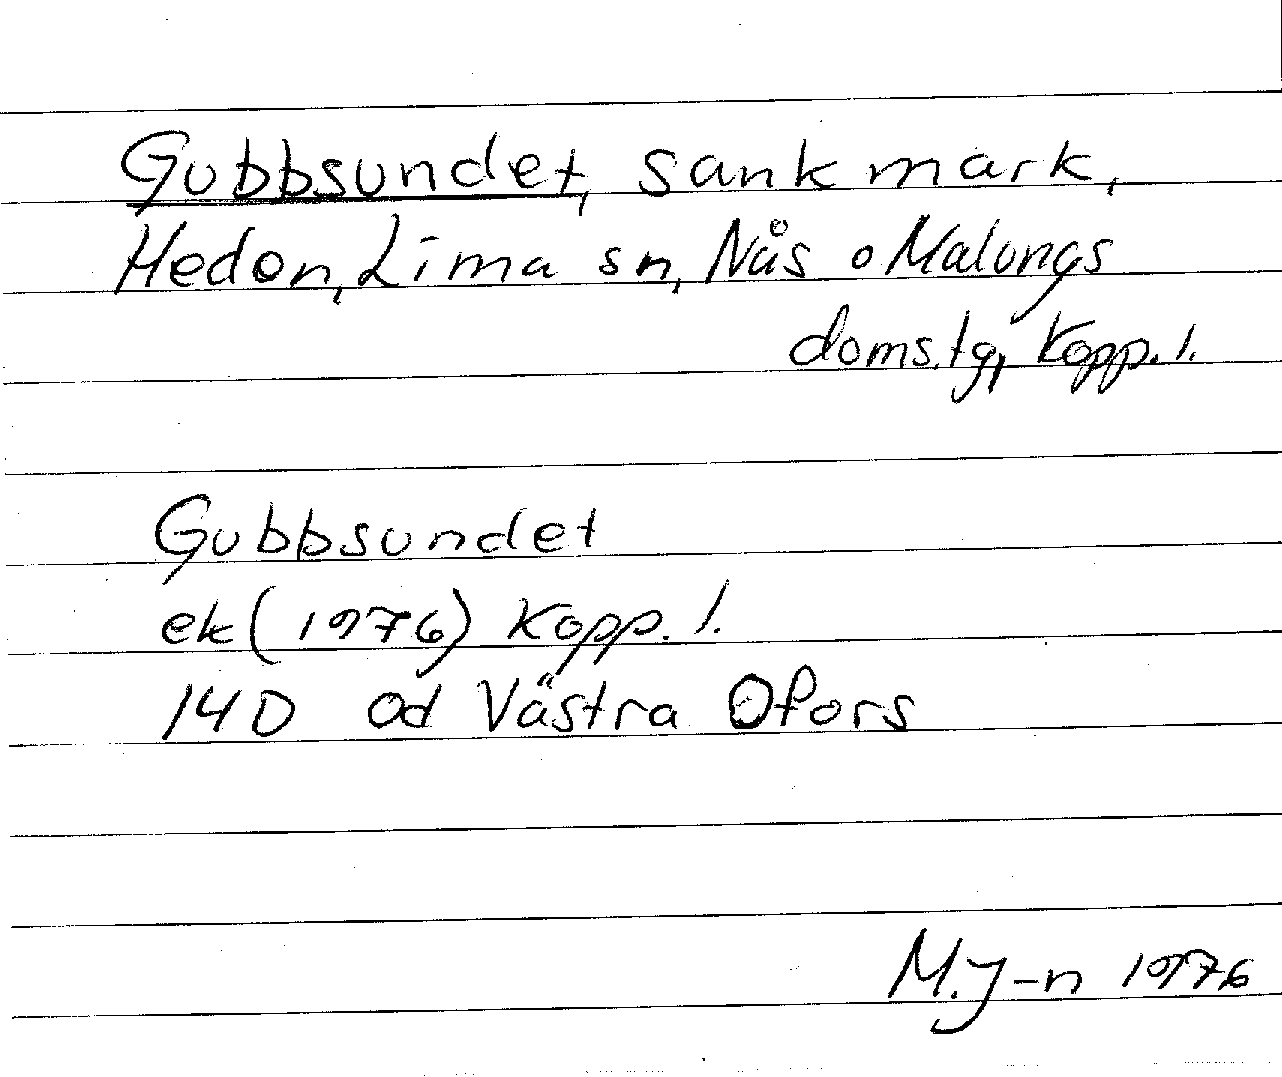 Gubbsundet, sank mark,
Heden, Lima sn, Nås o Malungs
doms.tg, Kopp. l.
Gubbsundet
ek (1976) Kopp. l.
14D od Västra Ofors
M.J-n 1976